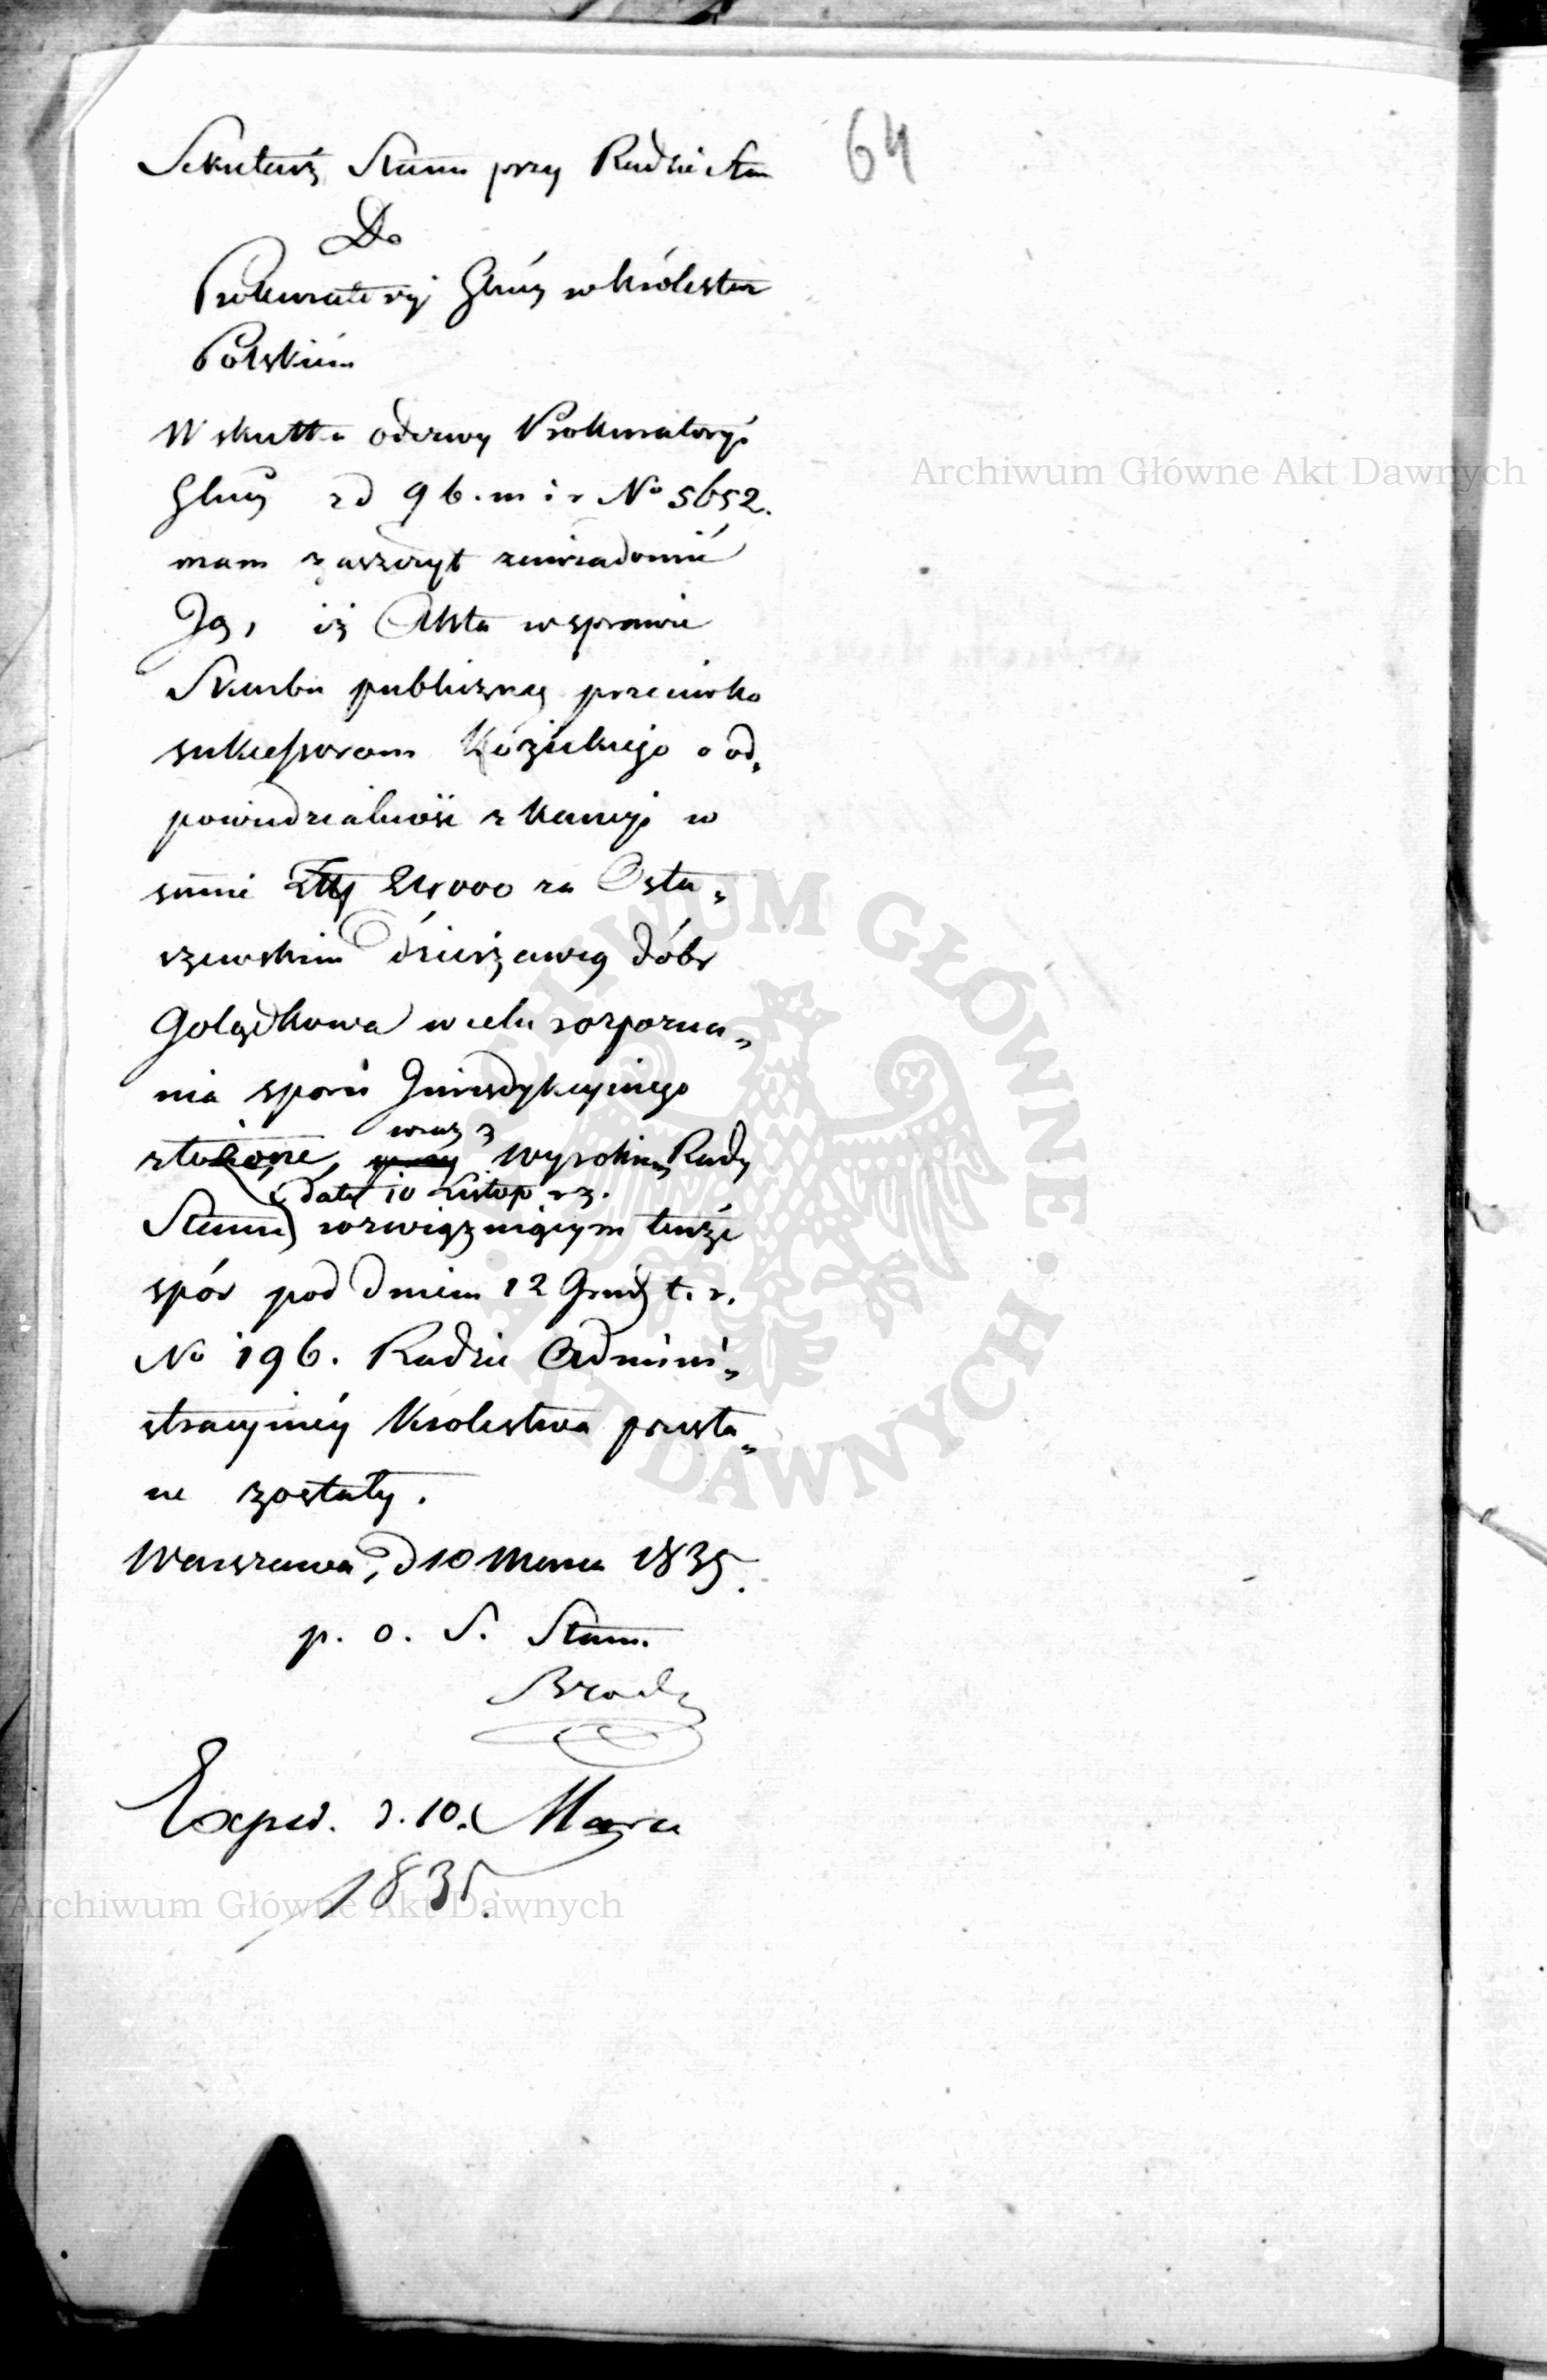 64
Sekretarz Stanu przy Radzie Stan
Do
Prokuratoryi Głney w Królestw
Polskiém
W skutku odezwy Prokuratoryi
Głney z d 9 b. m i r No 5652.
mam zaszczyt zawiadomić
Ją, iż Akta w sprawie
Skarbu publiczneg przeciwko
sukcessorom Kozickiego o od„
powiedzialność z kaucyi w
summie Złłp 24000 za Osta„
szewskim Dzierżawcą dóbr
Golądkowa w celu rozpozna„
nia sporu Jurisdykcyjnego
złożone, wraz z wyrokiem Rady
daty 10 Listop r z.
Stanu rozwiązuiącym tenże
spór pod dniem 12 Grud t. r.
No 196. Radzie Admini„
stracyinéy Królestwa przesła„
ne zostały.
Warszawa, d 10 Marca 1835.
p. o. S. Stanu.
Exped. d. 10. Marca
1835.
Archiwum Główne Akt Dawnych
ARCHIWUM GŁÓWNE · AKT DAWNYCH ·
Archiwum Główne Akt Dawnych